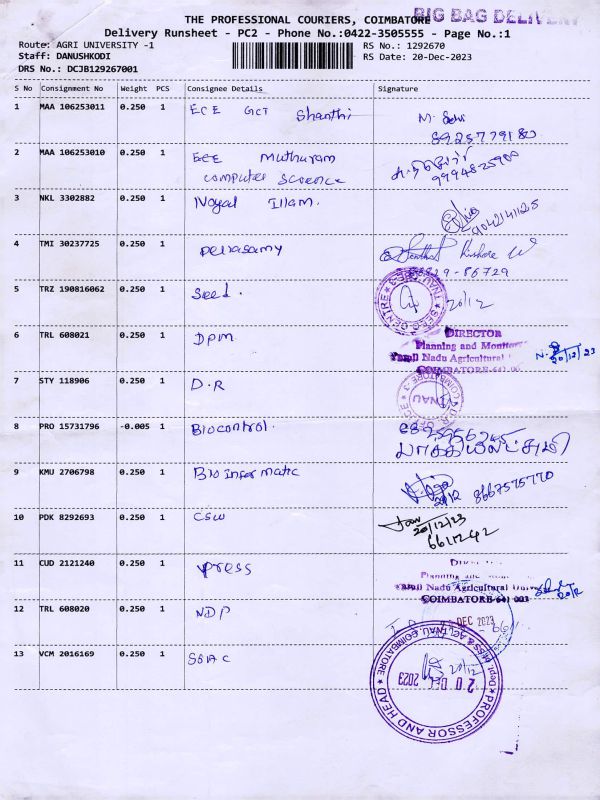 THE PROFESSIONAL COURIERS, COIMBATORE
BIG BAG DELIVERY
Delivery Runsheet - PC2 - Phone No.:0422-3505555 - Page No.:1
Route: AGRI UNIVERSITY -1
RS No.: 1292670
Staff: DANUSHKODI
RS Date: 20-Dec-2023
DRS No.: DCJB129267001
S No Consignment No Weight PCS Consignee Details Signature
1 MAA 106253011 0.250 1 ECE GCT Shanthi
8925779180
2 MAA 106253010 0.250 1 ECE Muthuram
computer Science
9994825900
3 NKL 3302882 0.250 1 Noyal Illam.
9042141125
4 TMI 30237725 0.250 1 periasamy
Kishore
86729
5 TRZ 190816062 0.250 1 Seed. 20/12
SEED CENTRE TNAU
6 TRL 608021 0.250 1 DPM
DIRECTOR
Planning and Monitor
Tamil Nadu Agricultural
COIMBATORE-641 003
20/12/23
7 STY 118906 0.250 1 D.R
TNAU
COIMBATORE-3
8 PRO 15731796 -0.005 1 Biocontrol.
9 KMU 2706798 0.250 1 Bioinformatic
20/12 8667575770
10 PDK 8292693 0.250 1 CSW
20/12/23
6611242
11 CUD 2121240 0.250 1 press
Planning
Tamil Nadu Agricultural Univer
COIMBATORE-641 003
20/12
12 TRL 608020 0.250 1 NDP
DEC 2023
13 VCM 2016169 0.250 1 SSAC
20/12
20 DEC 2023
PROFESSOR AND HEAD
TNAU, COIMBATORE